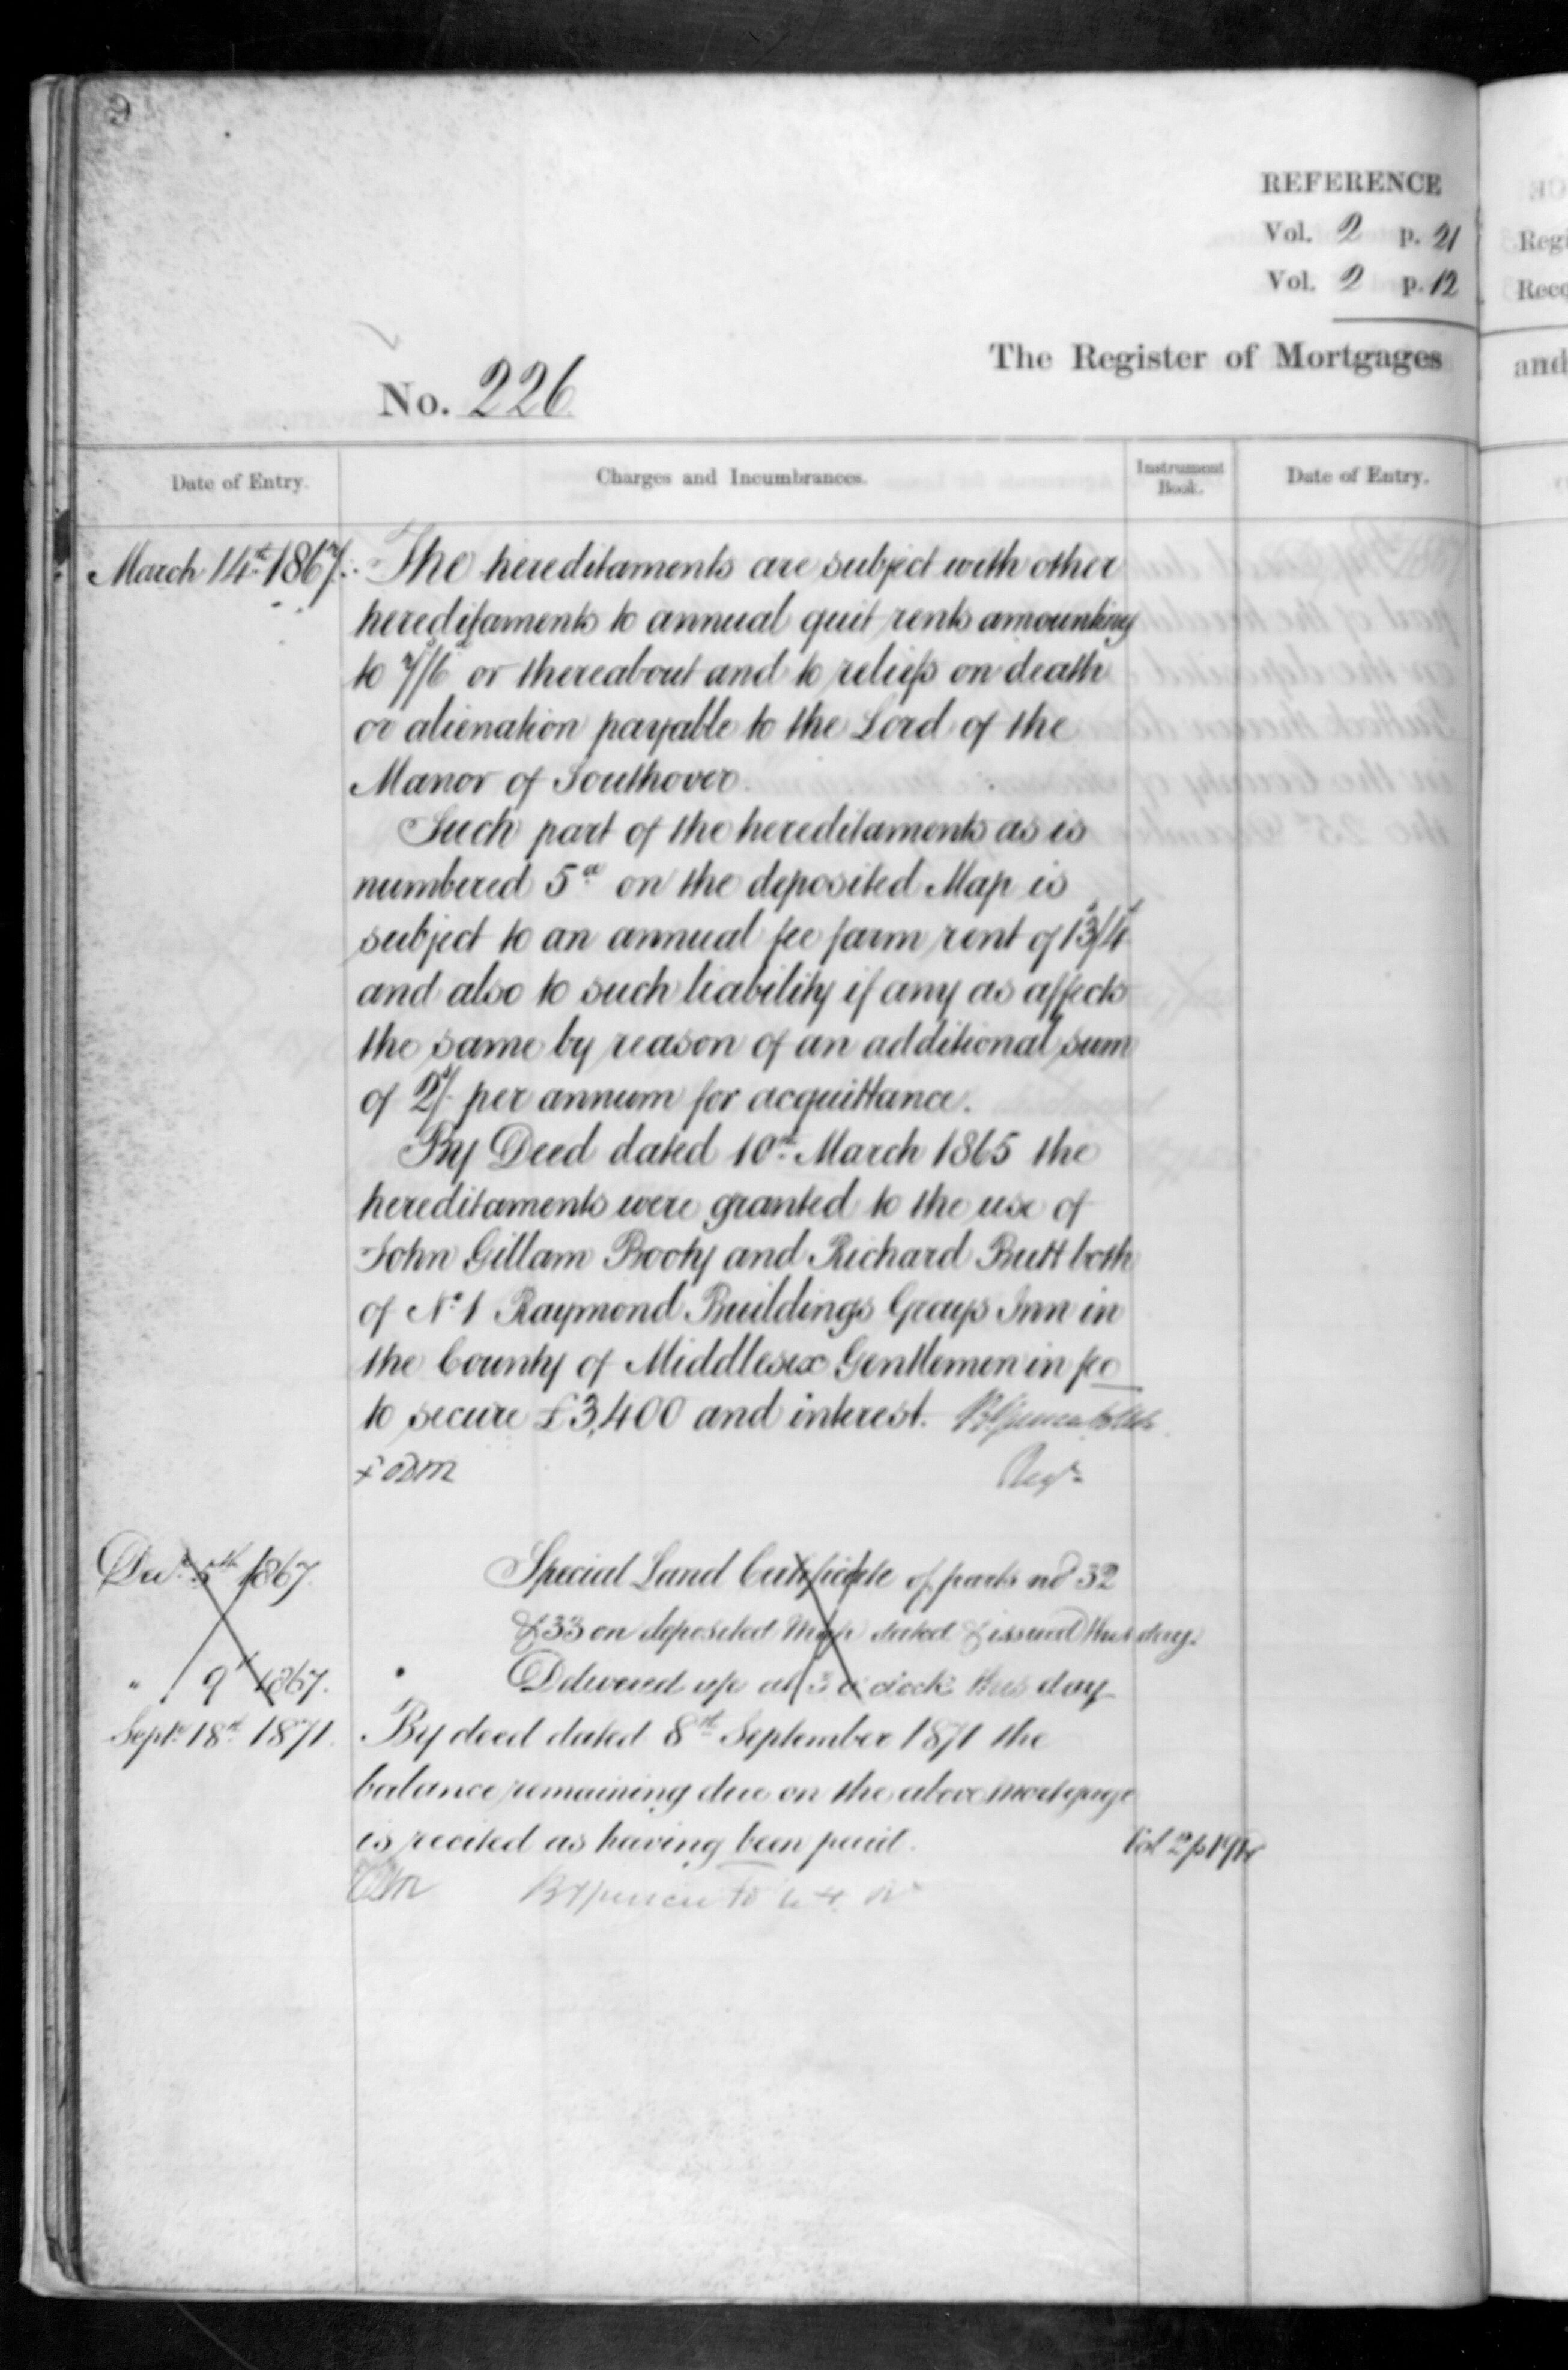 9
REFERENCE
Vol. 2 p. 21
Vol. 2 p. 12
The Register of Mortgages
No. 226
Date of Entry. Charges and Incumbrances. Instrument Book. Date of Entry.
March 14th 1867. The hereditaments are subject with other
hereditaments to annual quit rents amounting
to 7s/6d or thereabout and to reliefs on death
or alienation payable to the Lord of the
Manor of Southover.
Such part of the hereditaments as is
numbered 5a on the deposited Map is
subject to an annual fee farm rent of 13s/4d
and also to such liability if any as affects
the same by reason of an additional sum
of 2s/- per annum for acquittance.
By Deed dated 10th March 1865 the
hereditaments were granted to the use of
John Gillam Booty and Richard Butt both
of No. 1 Raymond Buildings Grays Inn in
the County of Middlesex Gentlemen in fee
to secure £3,400 and interest.
Regr
Decr 5th 1867. Special Land Certificate of parts nd 32
& 33 on deposited Map dated & issued this day.
" 9th 1867. Delivered up at 3 o'clock this day
Septr 18th 1871. By deed dated 8th September 1871 the
balance remaining due on the above mortgage
is recited as having been paid.
Vol 2 p
Regi
and